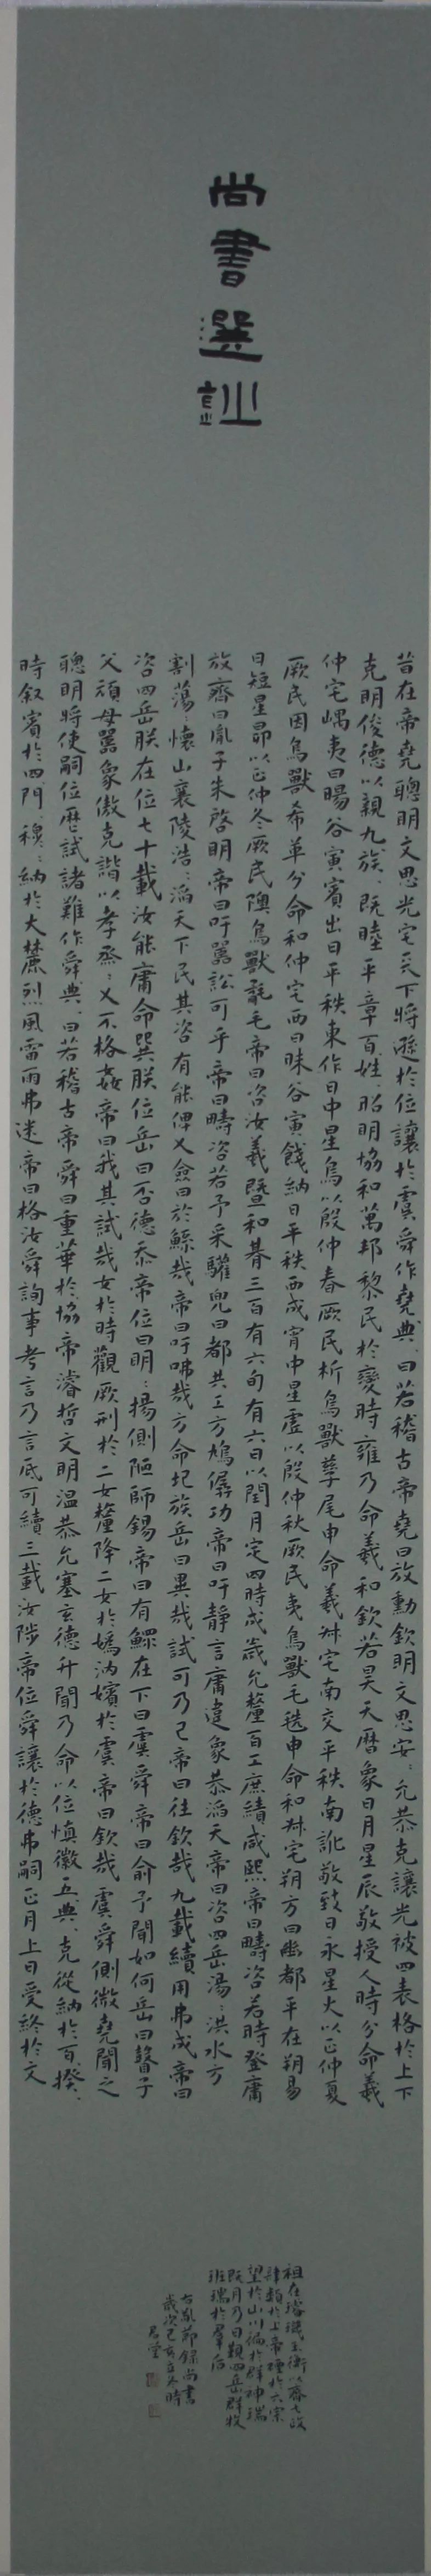 尚書選訓
昔在帝堯聰明文思光宅天下將遜於位讓於虞舜作堯典曰若稽古帝堯曰放勳欽明文思安〻允恭克讓光被四表格於上下
克明俊德以親九族〻既睦平章百姓〻昭明協和萬邦黎民於變時雍乃命羲和欽若昊天曆象日月星辰敬授人時分命羲
仲宅嵎夷曰暘谷寅賓出日平秩東作日中星鳥以殷仲春厥民析鳥獸孳尾申命羲叔宅南交平秩南訛敬致日永星火以正仲夏
厥民因鳥獸希革分命和仲宅西曰昧谷寅餞納日平秩西成宵中星虛以殷仲秋厥民夷鳥獸毛毨申命和叔宅朔方曰幽都平在朔易
日短星昴以正仲冬厥民隩鳥獸氄毛帝曰咨汝羲暨和朞三百有六旬有六日以閏月定四時成歲允釐百工庶績咸熙帝曰疇咨若時登庸
放齊曰胤子朱啓明帝曰吁嚚訟可乎帝曰疇咨若予采驩兜曰都共工方鳩僝功帝曰吁靜言庸違象恭滔天帝曰咨四岳湯〻洪水方
割蕩〻懷山襄陵浩〻滔天下民其咨有能俾乂僉曰於鯀哉帝曰吁咈哉方命圮族岳曰异哉試可乃已帝曰往欽哉九載績用弗成帝曰
咨四岳朕在位七十載汝能庸命巽朕位岳曰否德忝帝位曰明〻揚側陋師錫帝曰有鰥在下曰虞舜帝曰俞予聞如何岳曰瞽子
父頑母嚚象傲克諧以孝烝〻乂不格姦帝曰我其試哉女於時觀厥刑於二女釐降二女於媯汭嬪於虞帝曰欽哉虞舜側微堯聞之
聰明將使嗣位歷試諸難作舜典曰若稽古帝舜曰重華於協帝濬哲文明溫恭允塞玄德升聞乃命以位慎徽五典〻克從納於百揆〻
時叙賓於四門〻穆〻納於大麓烈風雷雨弗迷帝曰格汝舜詢事考言乃言厎可績三載汝陟帝位舜讓於德弗嗣正月上日受終於文
祖在璿璣玉衡以齊七政
肆類於上帝禋於六宗
望於山川徧於群神輯瑞
既月乃日覲四岳群牧
班瑞於羣后
右節錄尚書
歲次己亥